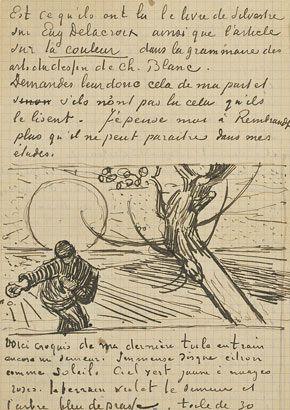 Est ce qu'ils ont lu le livre de Silvestre
sur Eug Delacroix ainsi que l'article
sur la couleur dans la grammaire des
arts du dessin de Ch. Blanc.
Demandez leur donc cela de ma part et
sinon s'ils n'ont pas lu cela qu'ils
le lisent. Je pense moi à Rembrandt
plus qu'il ne peut paraitre dans mes
études.
Voici croquis de ma dernière toile en train
encore un semeur. Immense disque citron
comme soleil. Ciel vert jaune à nuages
roses. le terrain violet le semeur et
l'arbre bleu de prusse toile de 30